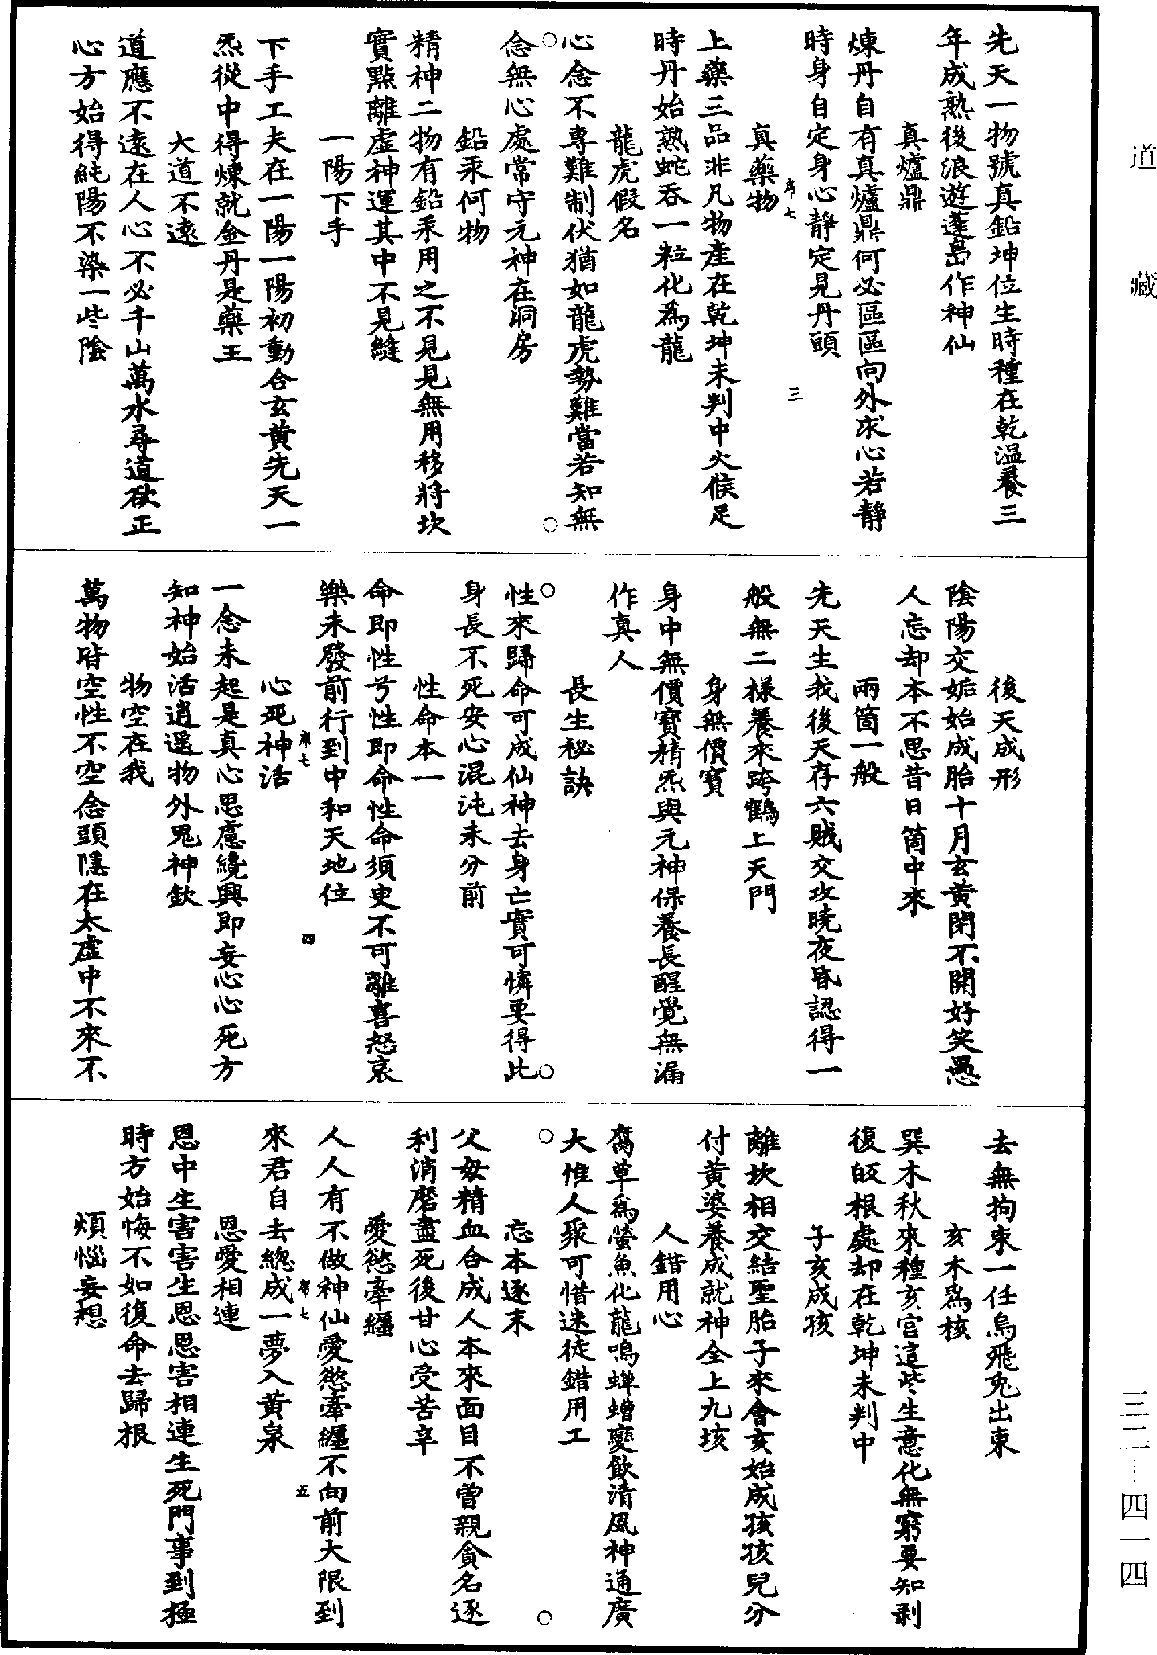 道藏
先天一物號真鉛坤位生時種在乾温養三
年成熟後浪遊蓬島作神仙
真爐鼎
煉丹自有真爐鼎何必區區向外求心若静
時身自定身心静定見丹頭
三
真藥物
上藥三品非凡物產在乾坤未判中火候足
時丹始熟蛇吞一粒化為龍
龍虎假名
心念不專難制伏猶如龍虎勢難當若知無
念無心處常守元神在洞房
鉛汞何物
精神二物有鉛汞用之不見見無用移將坎
實點離虛神運其中不見縫
一陽下手
下手工夫在一陽一陽初動合玄黃先天一
炁從中得煉就金丹是藥王
大道不遠
道應不遠在人心不必千山萬水尋道欲正
心方始得純陽不染一些陰
後天成形
陰陽交姤始成胎十月玄黃閉不開好笑愚
人忘却本不思昔日箇中來
兩箇一般
先天生我後天存六賊交攻曉夜昏認得一
般無二樣養來跨鶴上天門
身無價寶
身中無價寶精炁與元神保養長醒覺無漏
作真人
長生秘訣
性來歸命可成仙神去身亡實可憐要得此
身長不死安心混沌未分前
性命本一
命即性兮性即命性命須臾不可離喜怒哀
樂未發前行到中和天地位
四
心死神活
一念未起是真心思慮纔興即妄心心死方
知神始活逍遥物外鬼神欽
物空在我
萬物皆空性不空念頭隱在太虛中不來不
去無拘束一任烏飛兔出東
亥木為核
巽木秋來種亥宮這些生意化無窮要知剥
復皈根處却在乾坤未判中
子亥成孩
離坎相交結聖胎子來會亥始成孩孩兒分
付黃婆養成就神全上九垓
人錯用心
腐草為螢魚化龍鳴蟬蠐變飲清風神通廣
大惟人聚可惜迷徒錯用工
忘本逐末
父母精血合成人本來面目不曾親貪名逐
利消磨盡死後甘心受苦辛
愛慾牽纏
人人有不做神仙愛慾牽纏不向前大限到
來君自去總成一夢入黃泉
五
恩愛相連
恩中生害害生恩恩害相連生死門事到極
時方始悔不如復命去歸根
煩惱妄想
三二—四一四